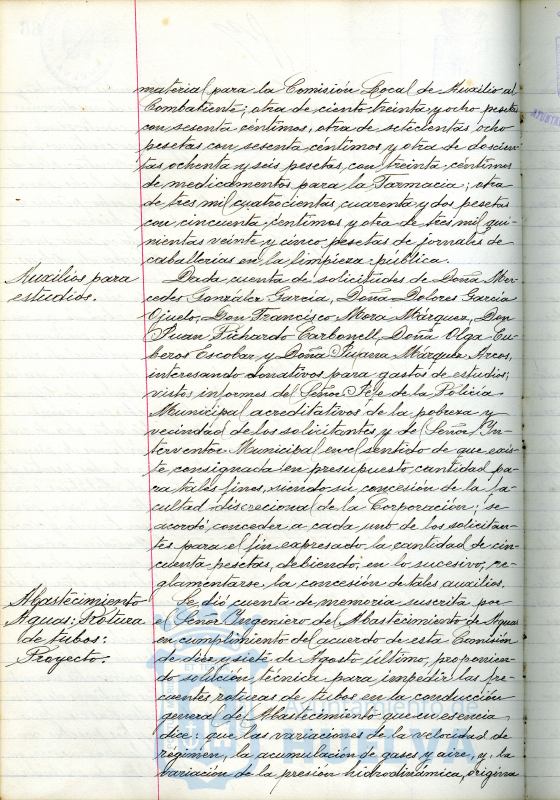 material para la Comisión Local de Auxilio al
Combatiente; otra de ciento treinta y ocho pesetas
con sesenta céntimos, otra de setecientas ocho
pesetas con sesenta céntimos y otra de doscien-
tas ochenta y seis pesetas con treinta céntimos
de medicamentos para la Farmacia; otra
de tres mil cuatrocientas cuarenta y dos pesetas
con cincuenta céntimos y otra de tres mil qui-
nientas veinte y cinco pesetas de jornales de
caballerías en la limpieza pública.
Auxilios para
estudios.
Dada cuenta de solicitudes de Doña Mer-
cedes González García, Doña Dolores García
Ojuelo, Don Francisco Mora Márquez, Don
Juan Fichardo Carbonell, Doña Olga Cu-
beros Escobar y Doña Márquez Arcos,
interesando donativos para gastos de estudios;
vistos informes del Señor Jefe de la Policía
Municipal acreditativos de la pobreza y
vecindad de los solicitantes y del Señor In-
terventor Municipal en el sentido de que exis-
te consignada en presupuesto cantidad pa-
ra tales fines, siendo su concesión de la fa-
cultad discrecional de la Corporación; se
acordó conceder a cada uno de los solicitan-
tes para el fin expresado la cantidad de cin-
cuenta pesetas, debiendo, en lo sucesivo, re-
glamentarse la concesión de tales auxilios.
Abastecimiento
Aguas: Rotura
de tubos:
Proyecto.
Se dió cuenta de memoria suscrita por
el Señor Ingeniero del Abastecimiento de Aguas
en cumplimiento del acuerdo de esta Comisión
de diez y siete de Agosto último, proponien-
do solución técnica para impedir las fre-
cuentes roturas de tubos en la conducción
general del Abastecimiento que en esencia
dice: que las variaciones de la velocidad de
régimen, la acumulación de gases y aire, y la
variación de la presión hidrodinámica, origina
Ayuntamiento de
HUELVA